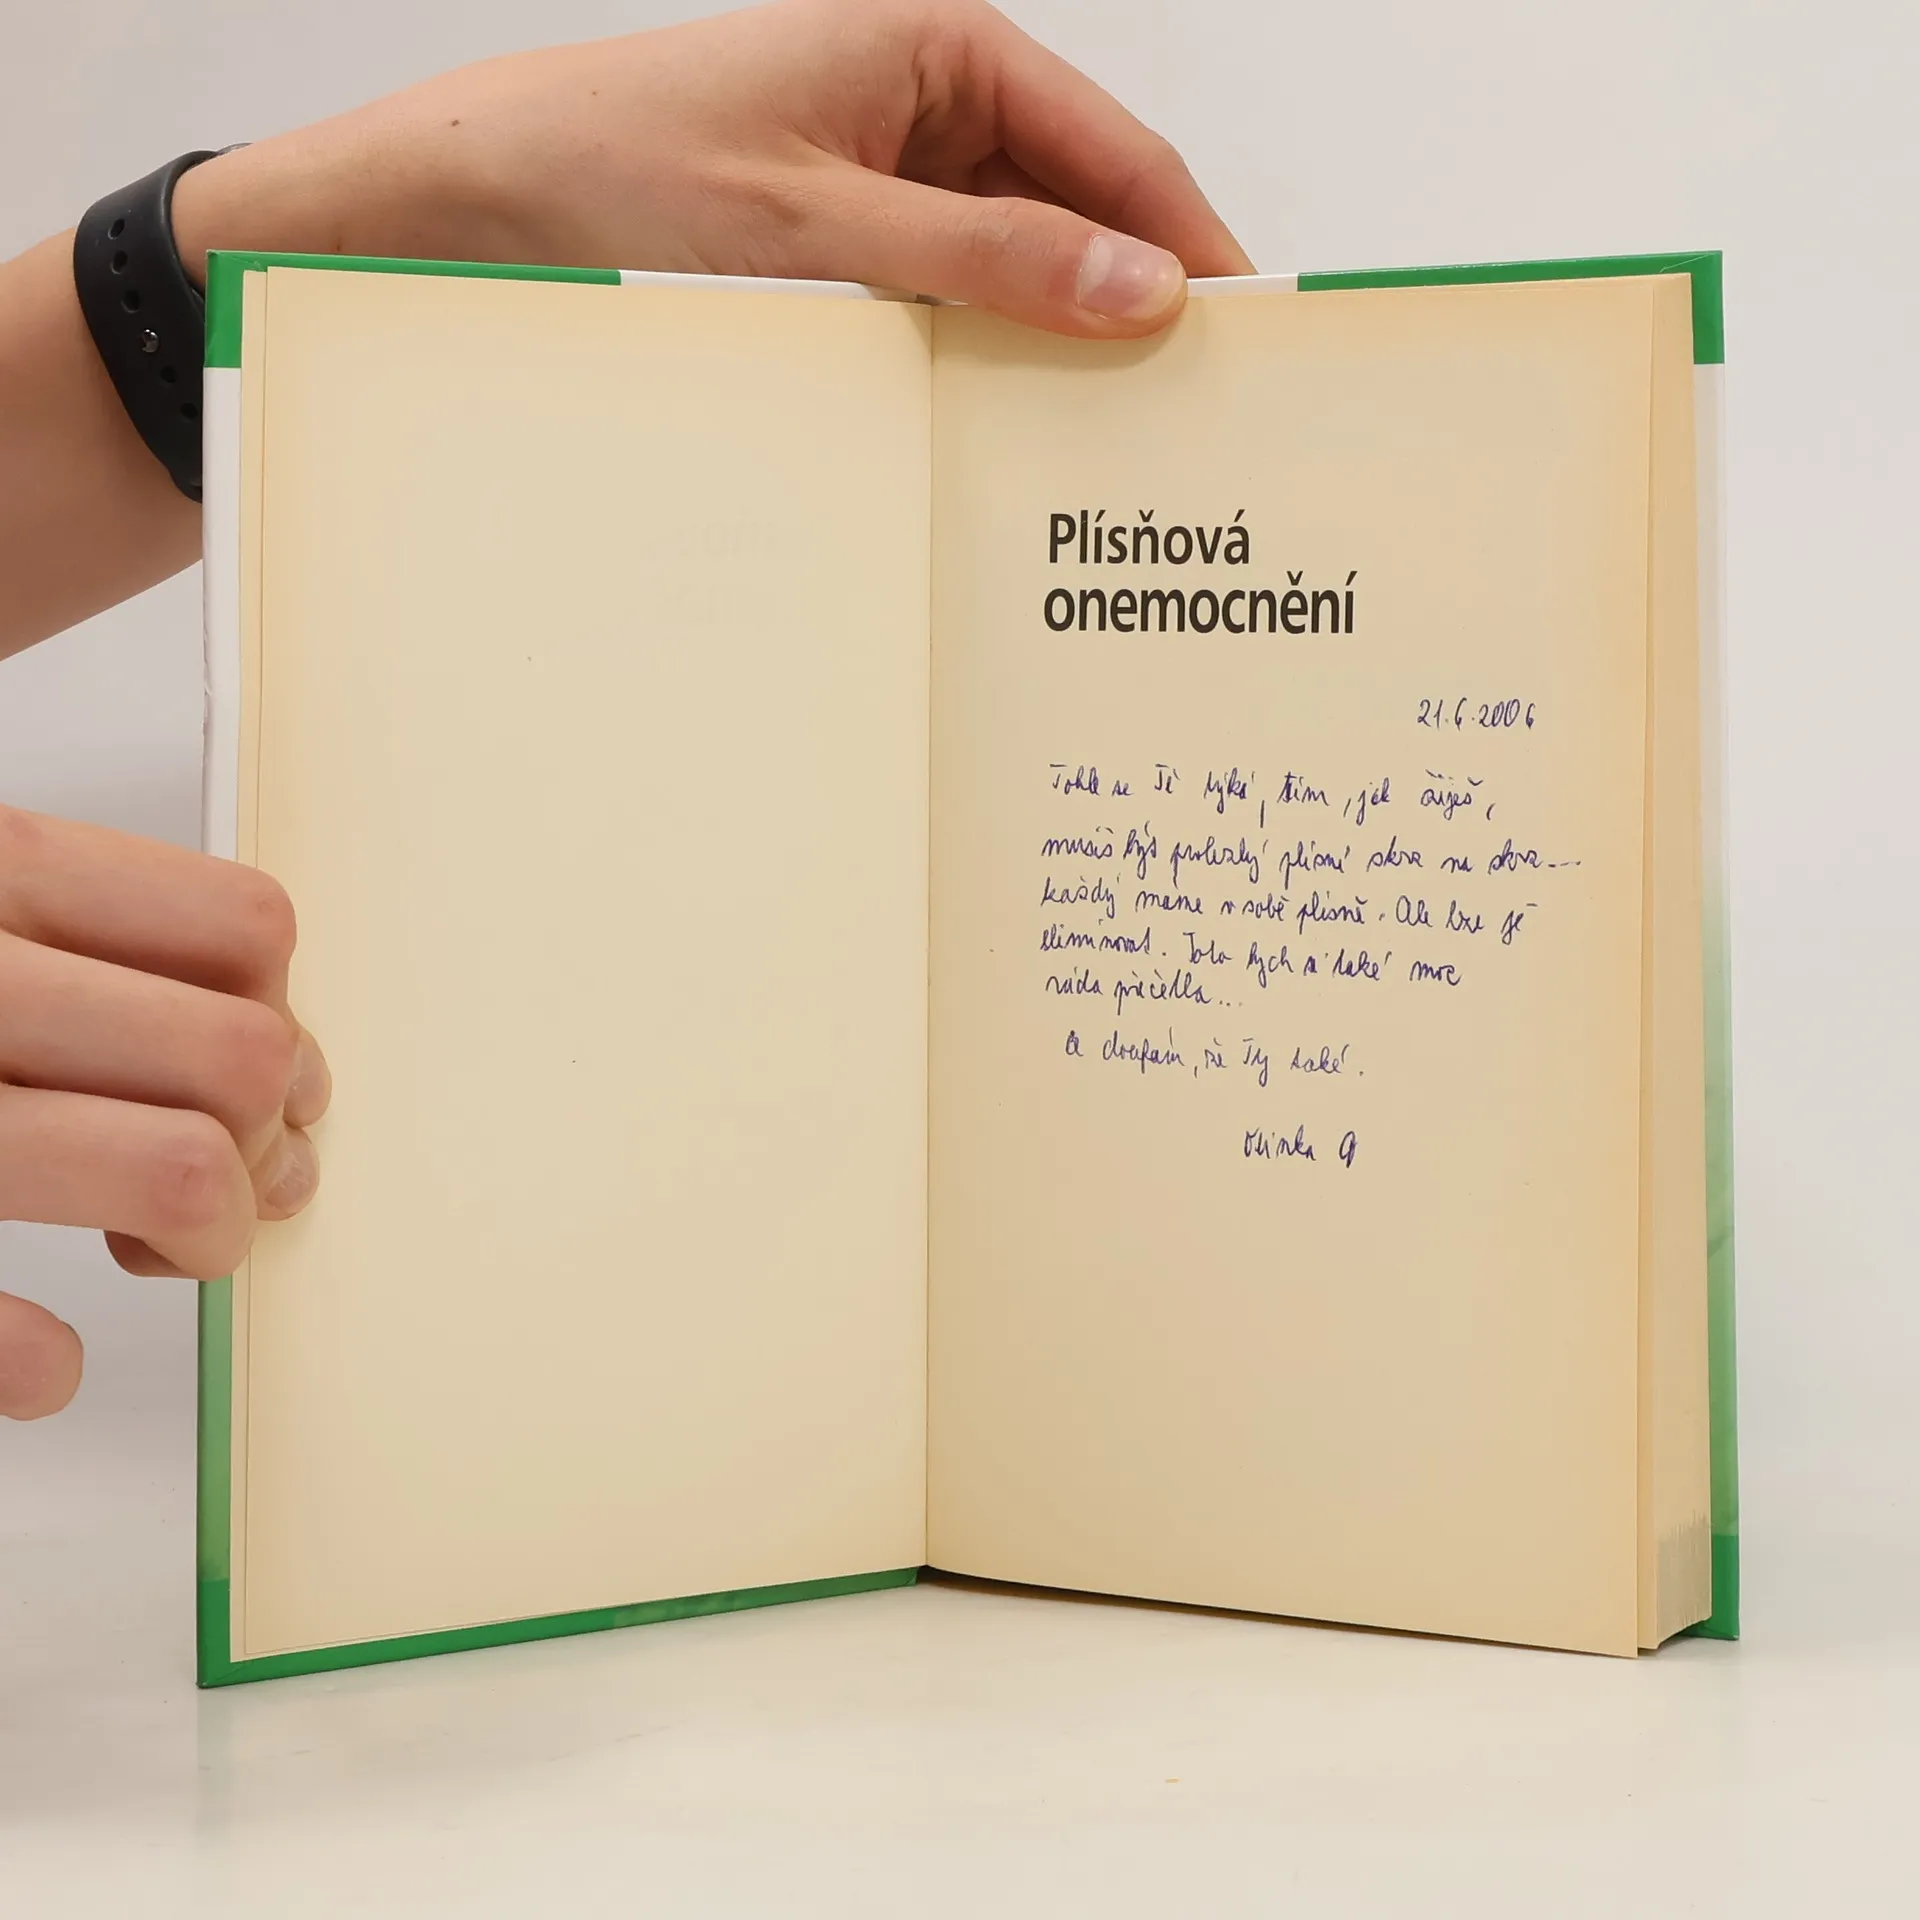 Plísňová
onemocnění
21.6.2006
Tohle se Tě týká, tím, jak žiješ,
musíš být prolezlý plísní skrz na skrz...
každý máme v sobě plísně. Ale lze je
eliminovat. Toto bych si také moc
ráda přečetla...
a doufám, že Ty také.